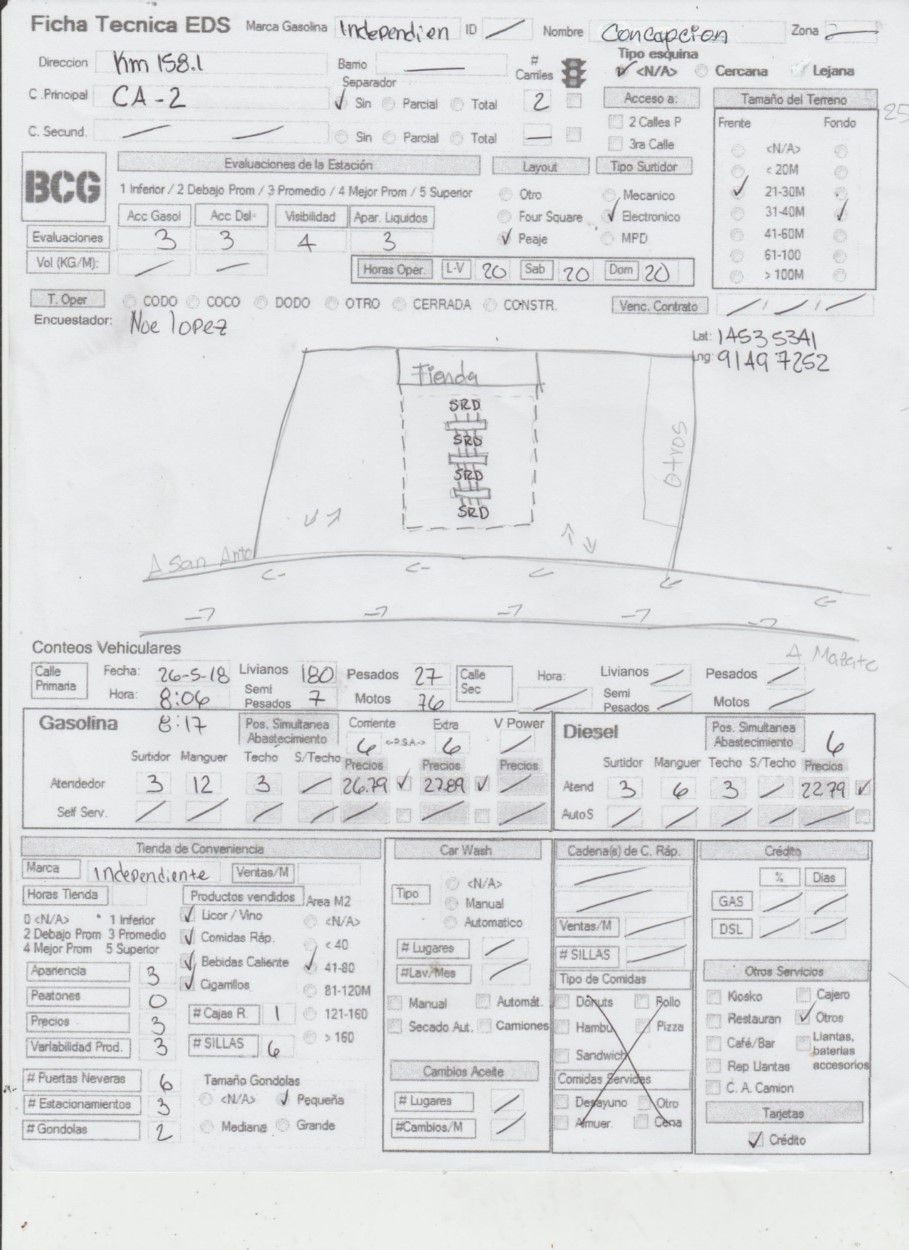 Ficha Tecnica EDS Marca Gasolina Independien ID Nombre Concapcion Zona 2
Direccion Km 158.1 Barrio # Carriles Tipo esquina <N/A> Cercana Lejana
Separador
C .Principal CA-2 Sin Parcial Total 2 Acceso a: Tamaño del Terreno
C. Secund. Sin Parcial Total 2 Calles P Frente Fondo
3ra Calle <N/A>
BCG Evaluaciones de la Estación Layout Tipo Surtidor < 20M
1 Inferior / 2 Debajo Prom / 3 Promedio / 4 Mejor Prom / 5 Superior Otro Mecanico 21-30M
Acc Gasol Acc Dsl Visibilidad Apar. Liquidos Four Square Electronico 31-40M
Evaluaciones 3 3 4 3 Peaje MPD 41-60M
Vol (KG/M): 61-100
Horas Oper. L-V 20 Sab 20 Dom 20 > 100M
T. Oper CODO COCO DODO OTRO CERRADA CONSTR. Venc. Contrato
Encuestador: Noe lopez
Lat: 14535341
Lng: 91497252
Tienda
SRD
SRD
SRD
SRD
otros
A San Anto
A Mazate
Conteos Vehiculares
Calle Primaria Fecha: 26-5-18 Livianos 180 Pesados 27 Calle Sec Hora: Livianos Pesados
Hora: 8:06 Semi Pesados 7 Motos 76 Semi Pesados Motos
Gasolina 8:17 Pos. Simultanea Abastecimiento Corriente 6 <-D.S.A-> Extra 6 V Power Diesel Pos. Simultanea Abastecimiento 6
Surtidor Manguer Techo S/Techo Precios Precios Precios Surtidor Manguer Techo S/Techo Precios
Atendedor 3 12 3 26.79 27.89 Atend 3 6 3 22.79
Self Serv. AutoS
Tienda de Conveniencia Car Wash Cadena(s) de C. Ráp. Crédito
Marca Independiente Ventas/M % Dias
Horas Tienda Productos vendidos Area M2 Tipo <N/A> GAS
0 <N/A> * 1 Inferior Licor / Vino <N/A> Manual DSL
2 Debajo Prom 3 Promedio Comidas Ráp. < 40 Automatico Ventas/M
4 Mejor Prom 5 Superior Bebidas Caliente 41-80 # Lugares # SILLAS
Apariencia 3 Cigarrillos 81-120M #Lav./Mes Tipo de Comidas Otros Servicios
Peatones 0 # Cajas R. 1 121-160 Manual Automát. Donuts Pollo Kiosko Cajero
Precios 3 > 160 Secado Aut. Camiones Hambu Pizza Restauran Otros
Variabilidad Prod. 3 # SILLAS 6 Sandwich Café/Bar Llantas, baterias accesorios
# Puertas Neveras 6 Tamaño Gondolas Cambios Aceite Comidas Servidas Rep Llantas
# Estacionamientos 3 <N/A> Pequeña # Lugares Desayuno Otro C. A. Camion
# Gondolas 2 Mediana Grande #Cambios/M Almuer. Cena Tarjetas
Crédito